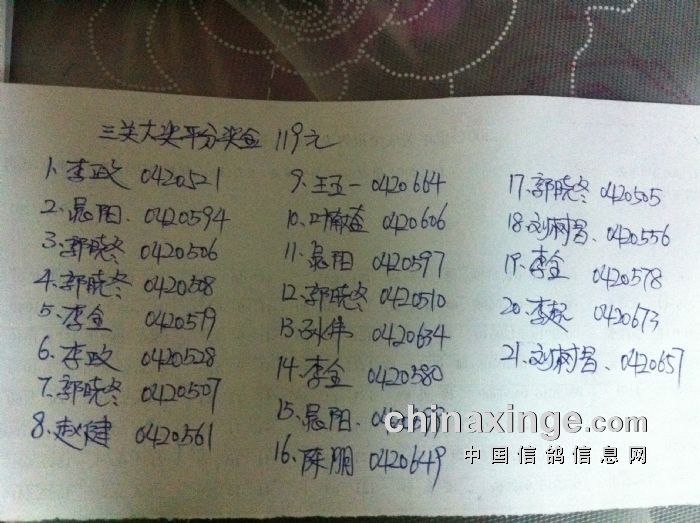 三关大奖平分奖金 119元
1. 李政 0420521
2. 晨阳. 0420594
3. 郭晓冬 0420506
4. 郭晓冬 0420508
5. 李全 0420579
6. 李政 0420528
7. 郭晓冬 0420507
8. 赵健 0420561
9. 王五一 0420664
10. 叶 0420606
11. 晨阳 0420597
12. 郭晓冬 0420510
13. 孙伟 0420634
14. 李全 0420580
15. 晨阳.
16. 陈朋 0420649
17. 郭晓冬 0420505
18. 刘树昌. 0420556
19. 李全 0420578
20. 李起 0420673
21. 刘树昌. 0420657
chinaxinge.com
中国信鸽信息网